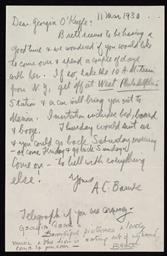 Dear Georgia O'Keeffe: 11 Mar 1930
Brett seems to be having a
good time & we wondered if you would like
to come over & spend a couple of days
with her. If so, take the 10 A.M. train
from N.Y., get off at West Philadelphia
Station & a car will bring you out to
Merion. Invitation includes bed, board
& booze.
Thursday would suit us
& you could go back Saturday morning
or come Friday & go back Sunday.
Come on - to hell with everything
else!
Yours
A. C. Barnes
Telegraph if you are coming.
Georgia
Beautiful